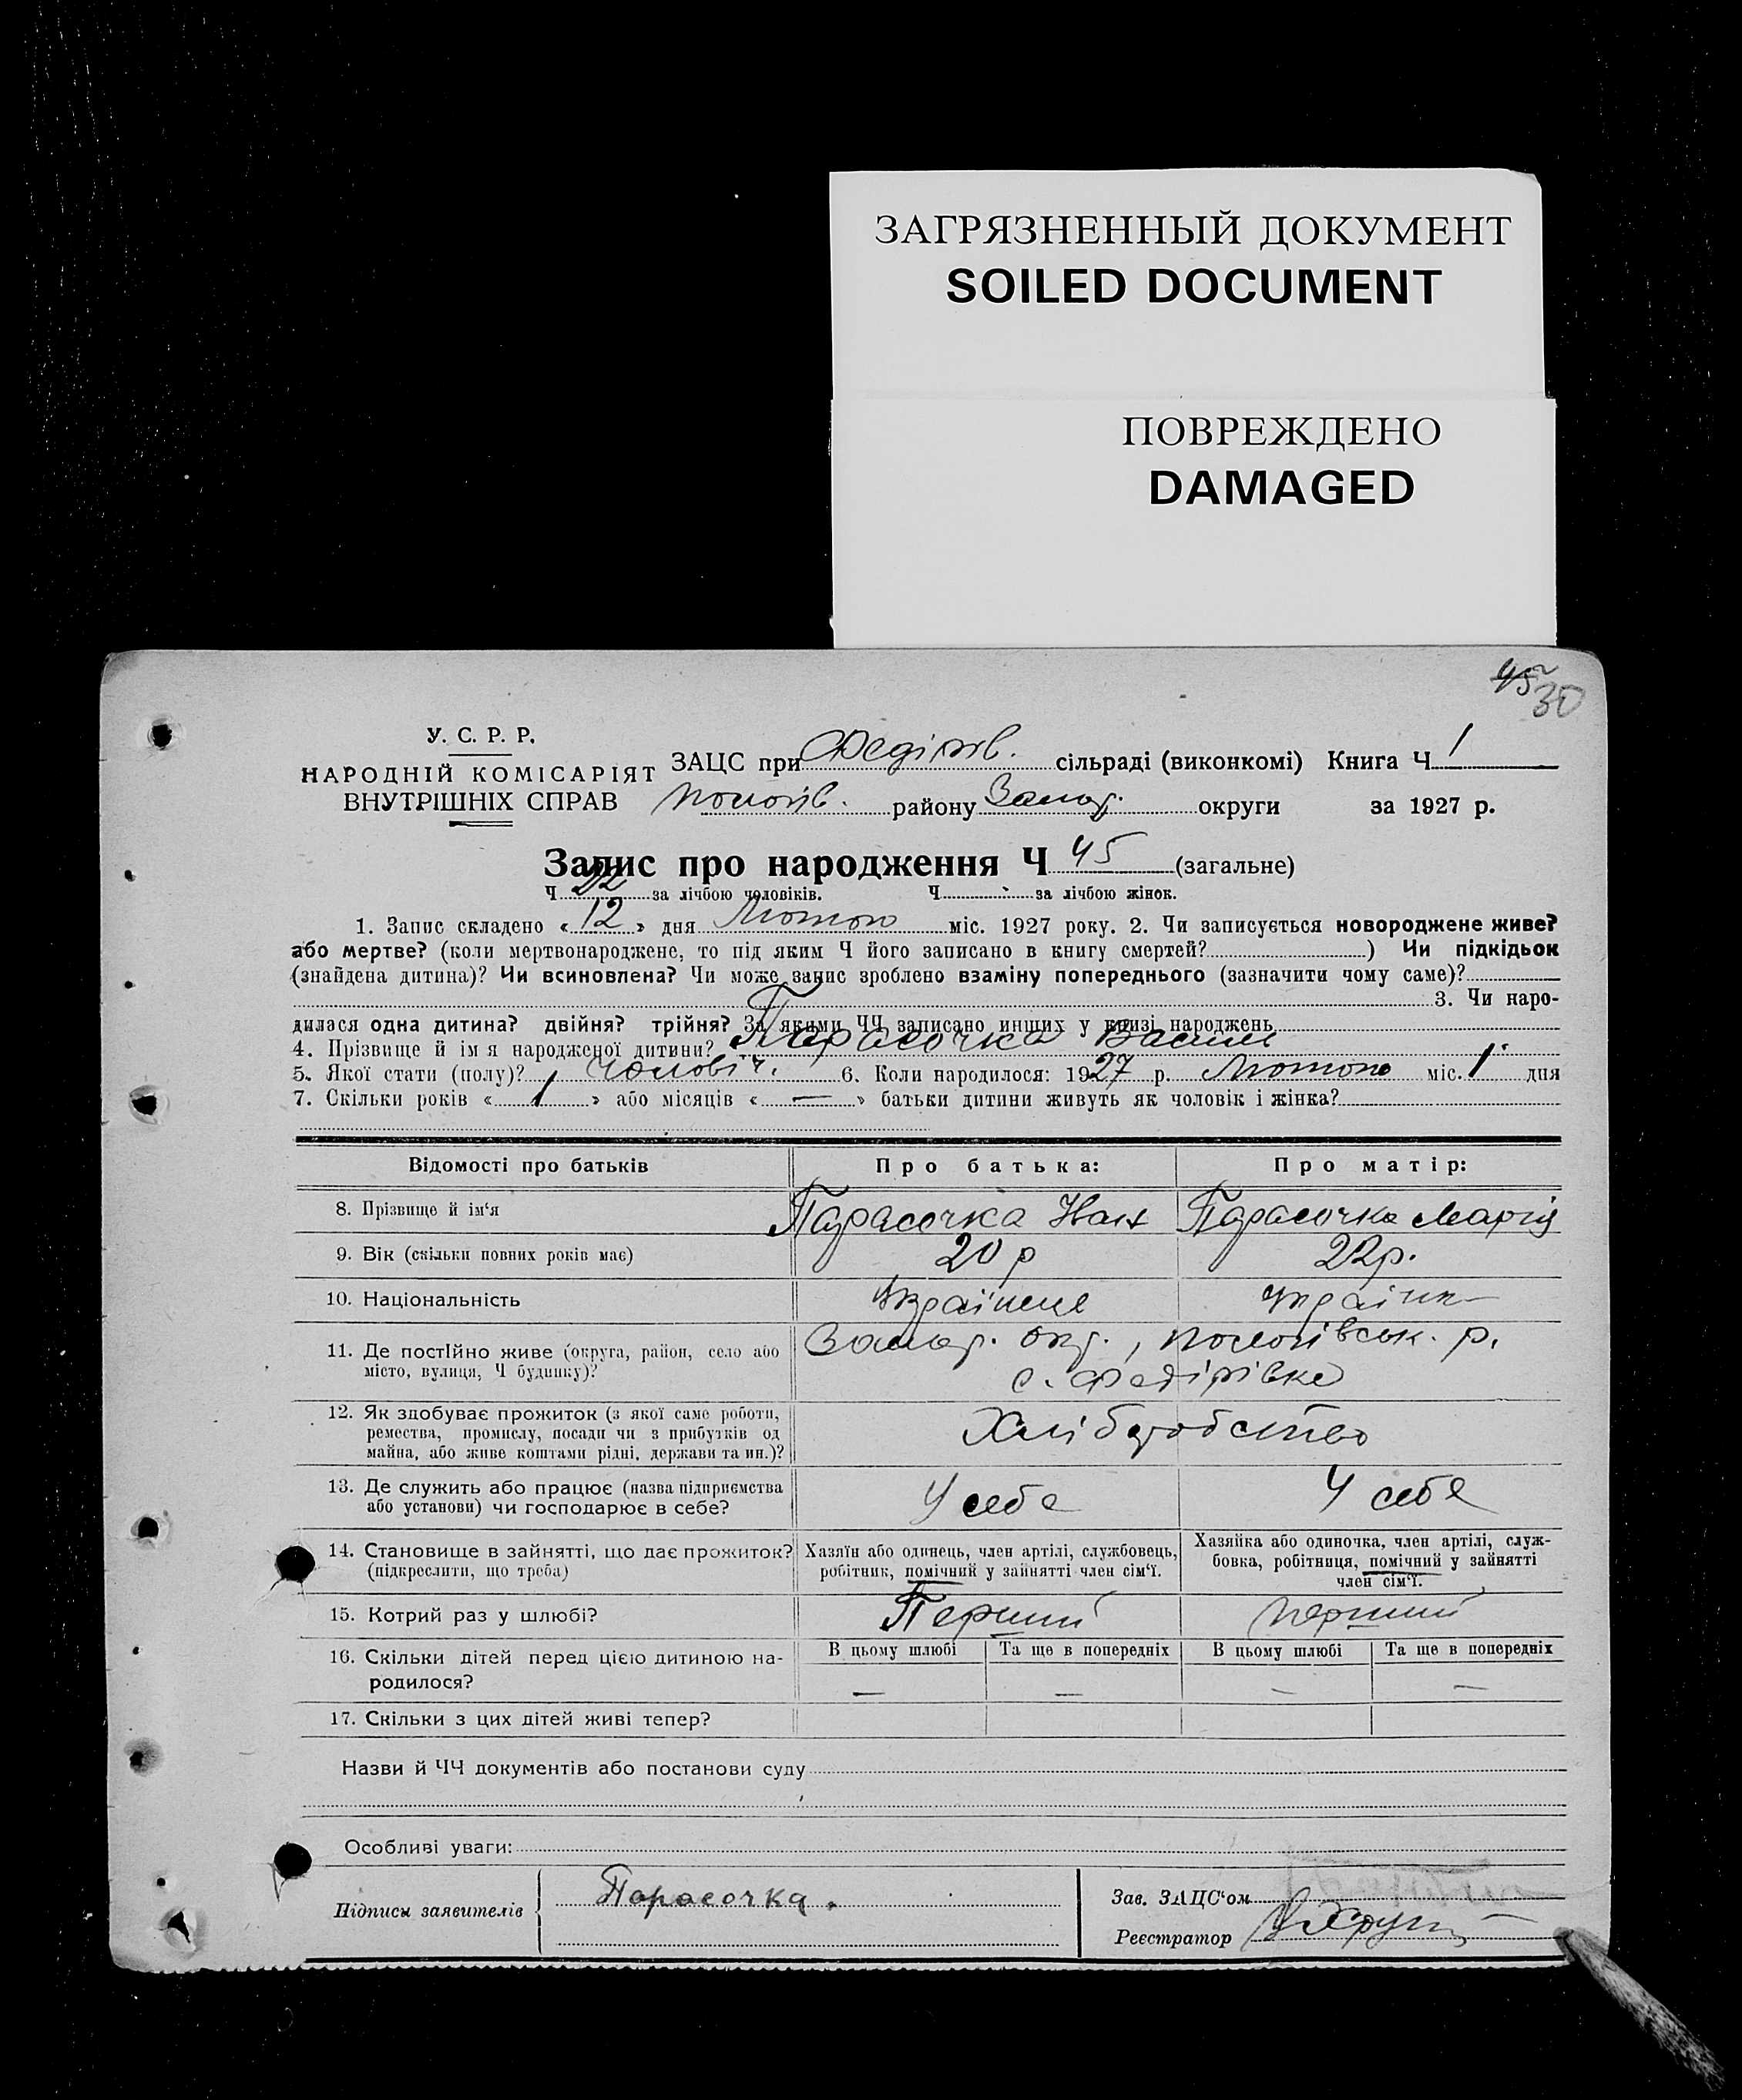 ЗАГРЯЗНЕННЫЙ ДОКУМЕНТ
SOILED DOCUMENT
ПОВРЕЖДЕНО
DAMAGED
45 30
У. С. Р. Р.
НАРОДНІЙ КОМІСАРІЯТ
ВНУТРІШНІХ СПРАВ
ЗАЦС при Федірів. сільраді (виконкомі) Книга Ч 1
Пологів. району Запор. округи за 1927 р.
Запис про народження Ч 45 (загальне)
Ч 22 за лічбою чоловіків. Ч за лічбою жінок.
1. Запис складено « 12 » дня Лютого міс. 1927 року. 2. Чи записується новороджене живе?
або мертве? (коли мертвонароджене, то під яким Ч його записано в книгу смертей? ) Чи підкідьок
(знайдена дитина)? Чи всиновлена? Чи може запис зроблено взаміну попереднього (зазначити чому саме)?
3. Чи наро-
дилася одна дитина? двійня? трійня? За якими ЧЧ записано инших у книзі народжень
4. Прізвище й ім я народженої дитини? Парасочка Васил
5. Якої стати (полу)? Чоловіч. 6. Коли народилося: 1927 р. Лютого міс. 1 дня
7. Скільки років « 1 » або місяців « — » батьки дитини живуть як чоловік і жінка?
Відомості про батьків Про батька: Про матір:
8. Прізвище й ім'я Парасочка Иван Парасочка Марія
9. Вік (скільки повних років має) 20 р 22 р.
10. Національність Українець Українк
11. Де постійно живе (округа, район, село або
місто, вулиця, Ч будинку)?
Запор. окр., Пологівськ. р.
с. Федірівка
12. Як здобуває прожиток (з якої саме роботи,
ремества, промислу, посади чи з прибутків од
майна, або живе коштами рідні, держави та ин.)?
Хліборобство
13. Де служить або працює (назва підприємства
або установи) чи господарює в себе?
У себе У себе
14. Становище в зайнятті, що дає прожиток?
(підкреслити, що треба)
Хазяїн або одинець, член артілі, службовець,
робітник, помічний у зайнятті член сім'ї.
Хазяйка або одиночка, член артілі, служ-
бовка, робітниця, помічний у зайнятті
член сім'ї.
15. Котрий раз у шлюбі? Перший перший
16. Скільки дітей перед цією дитиною на-
родилося?
В цьому шлюбі Та ще в попередніх В цьому шлюбі Та ще в попередніх
— — — —
17. Скільки з цих дітей живі тепер?
Назви й ЧЧ документів або постанови суду
Особливі уваги:
Підписи заявителів Парасочка.
Зав. ЗАЦС'ом
Реєстратор